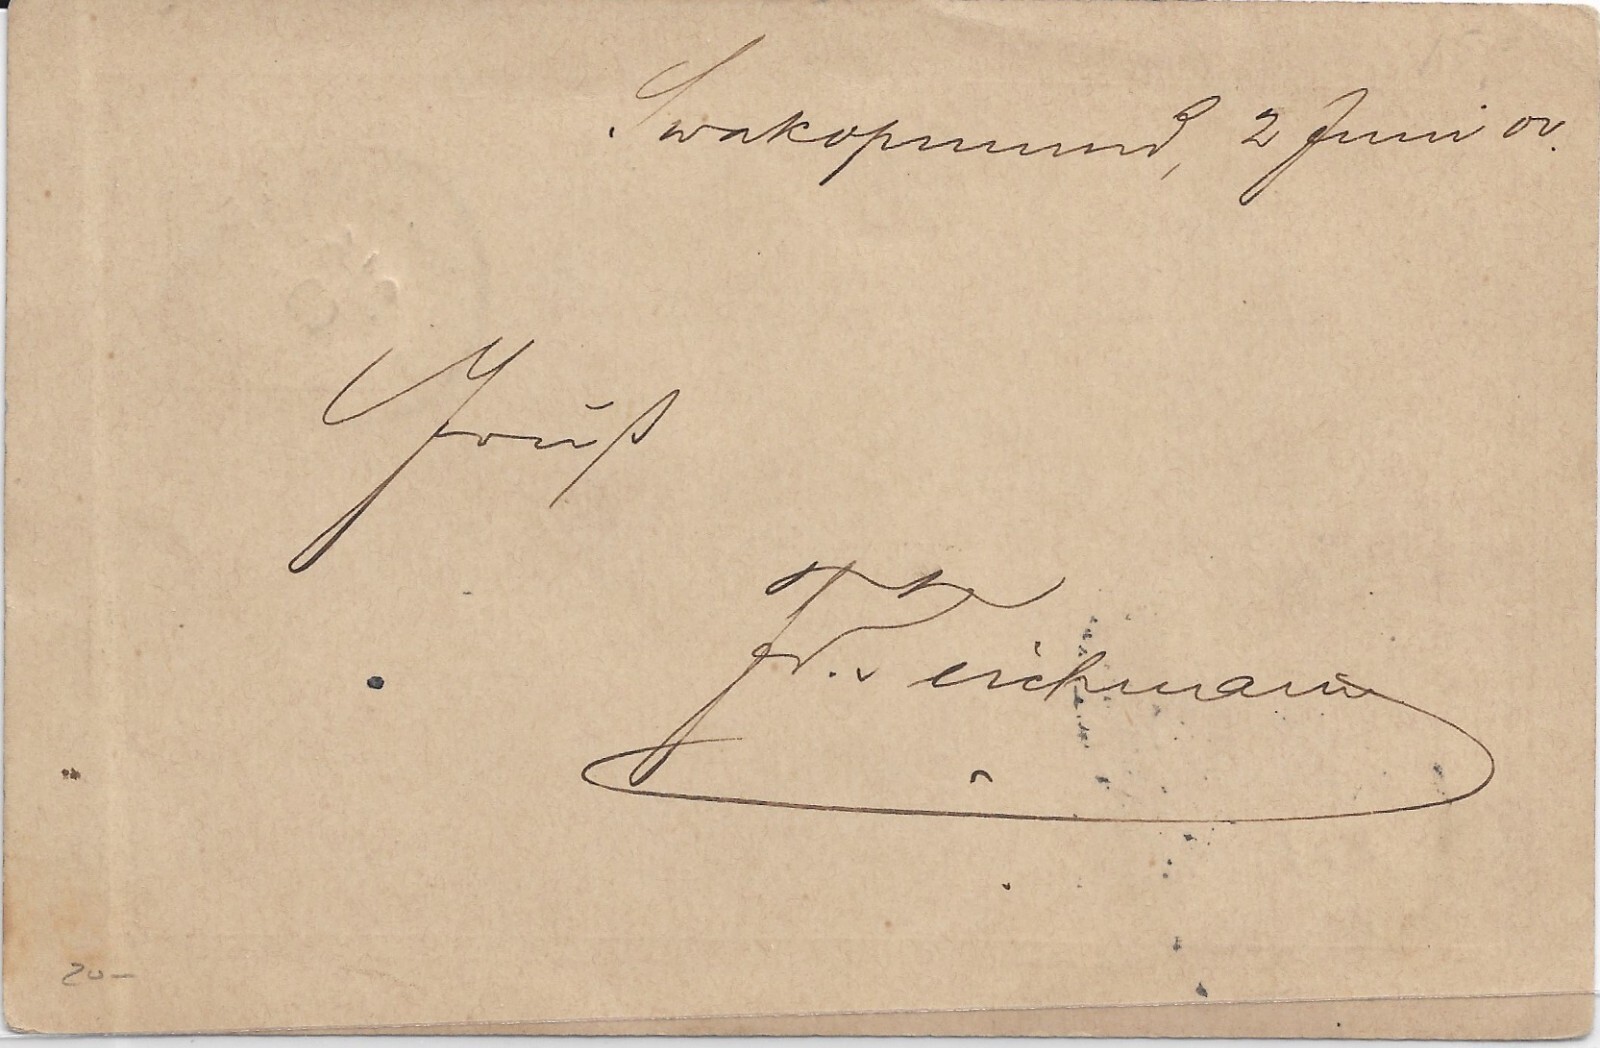 Swakopmund, 2 Juni 00.
Gruß
Fr. Teichmann
20 –